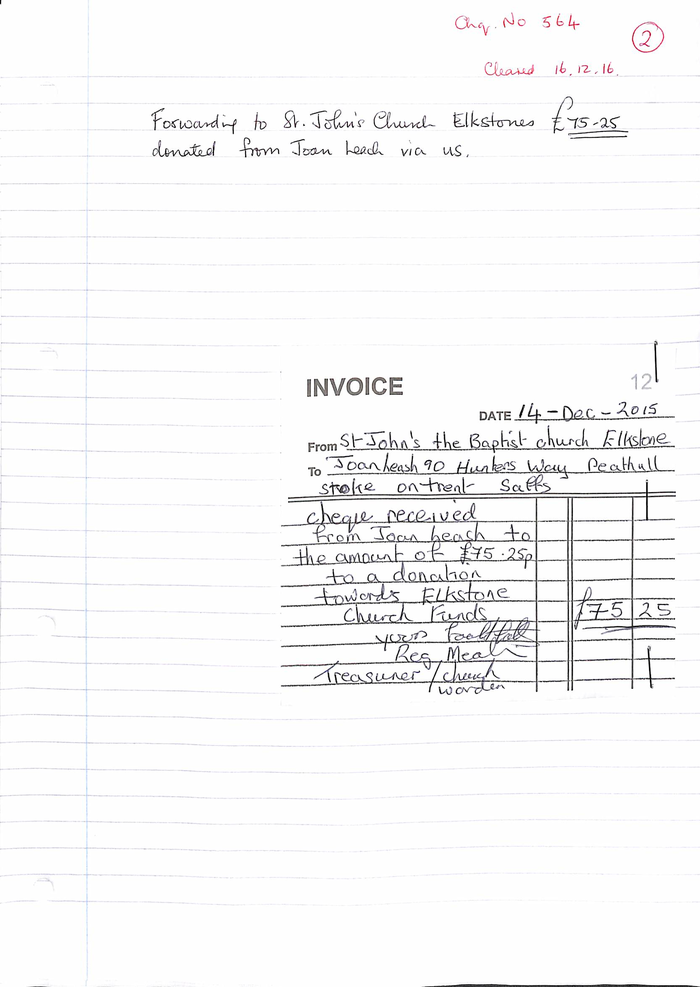 Chq. No 564
2
Cleared 16.12.16.
Forwarding to St. John's Church Elkstones £75-25
donated from Joan Leach via us.
INVOICE
12
DATE 14-Dec-2015
From St John's the Baptist church Elkstone
To Joan Leash 90 Hunters Way Peathall
stoke on trent Saffs
cheque received
from Joan Leash to
the amount of £75.25p
to a donation
towards Elkstone
Church Funds £75 25
yours
Reg Meal
Treasurer/church
warden